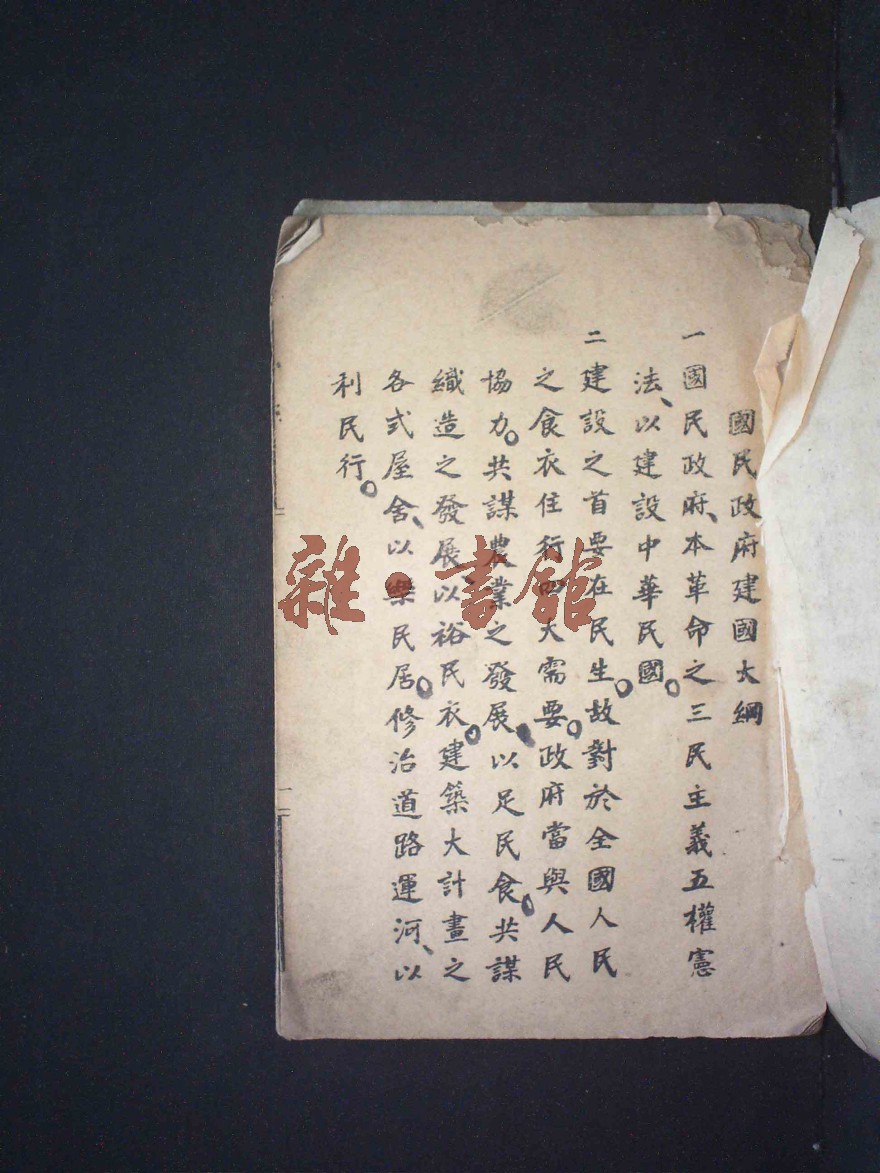 國民政府建國大綱
一國民政府、本革命之三民主義五權憲
法、以建設中華民國。
二建設之首要在民生。故對於全國人民
之食衣住行四大需要。政府當與人民
協力。共謀農業之發展、以足民食。共謀
織造之發展、以裕民衣。建築大計畫之
各式屋舍、以樂民居。修治道路運河、以
利民行。
雜·書館